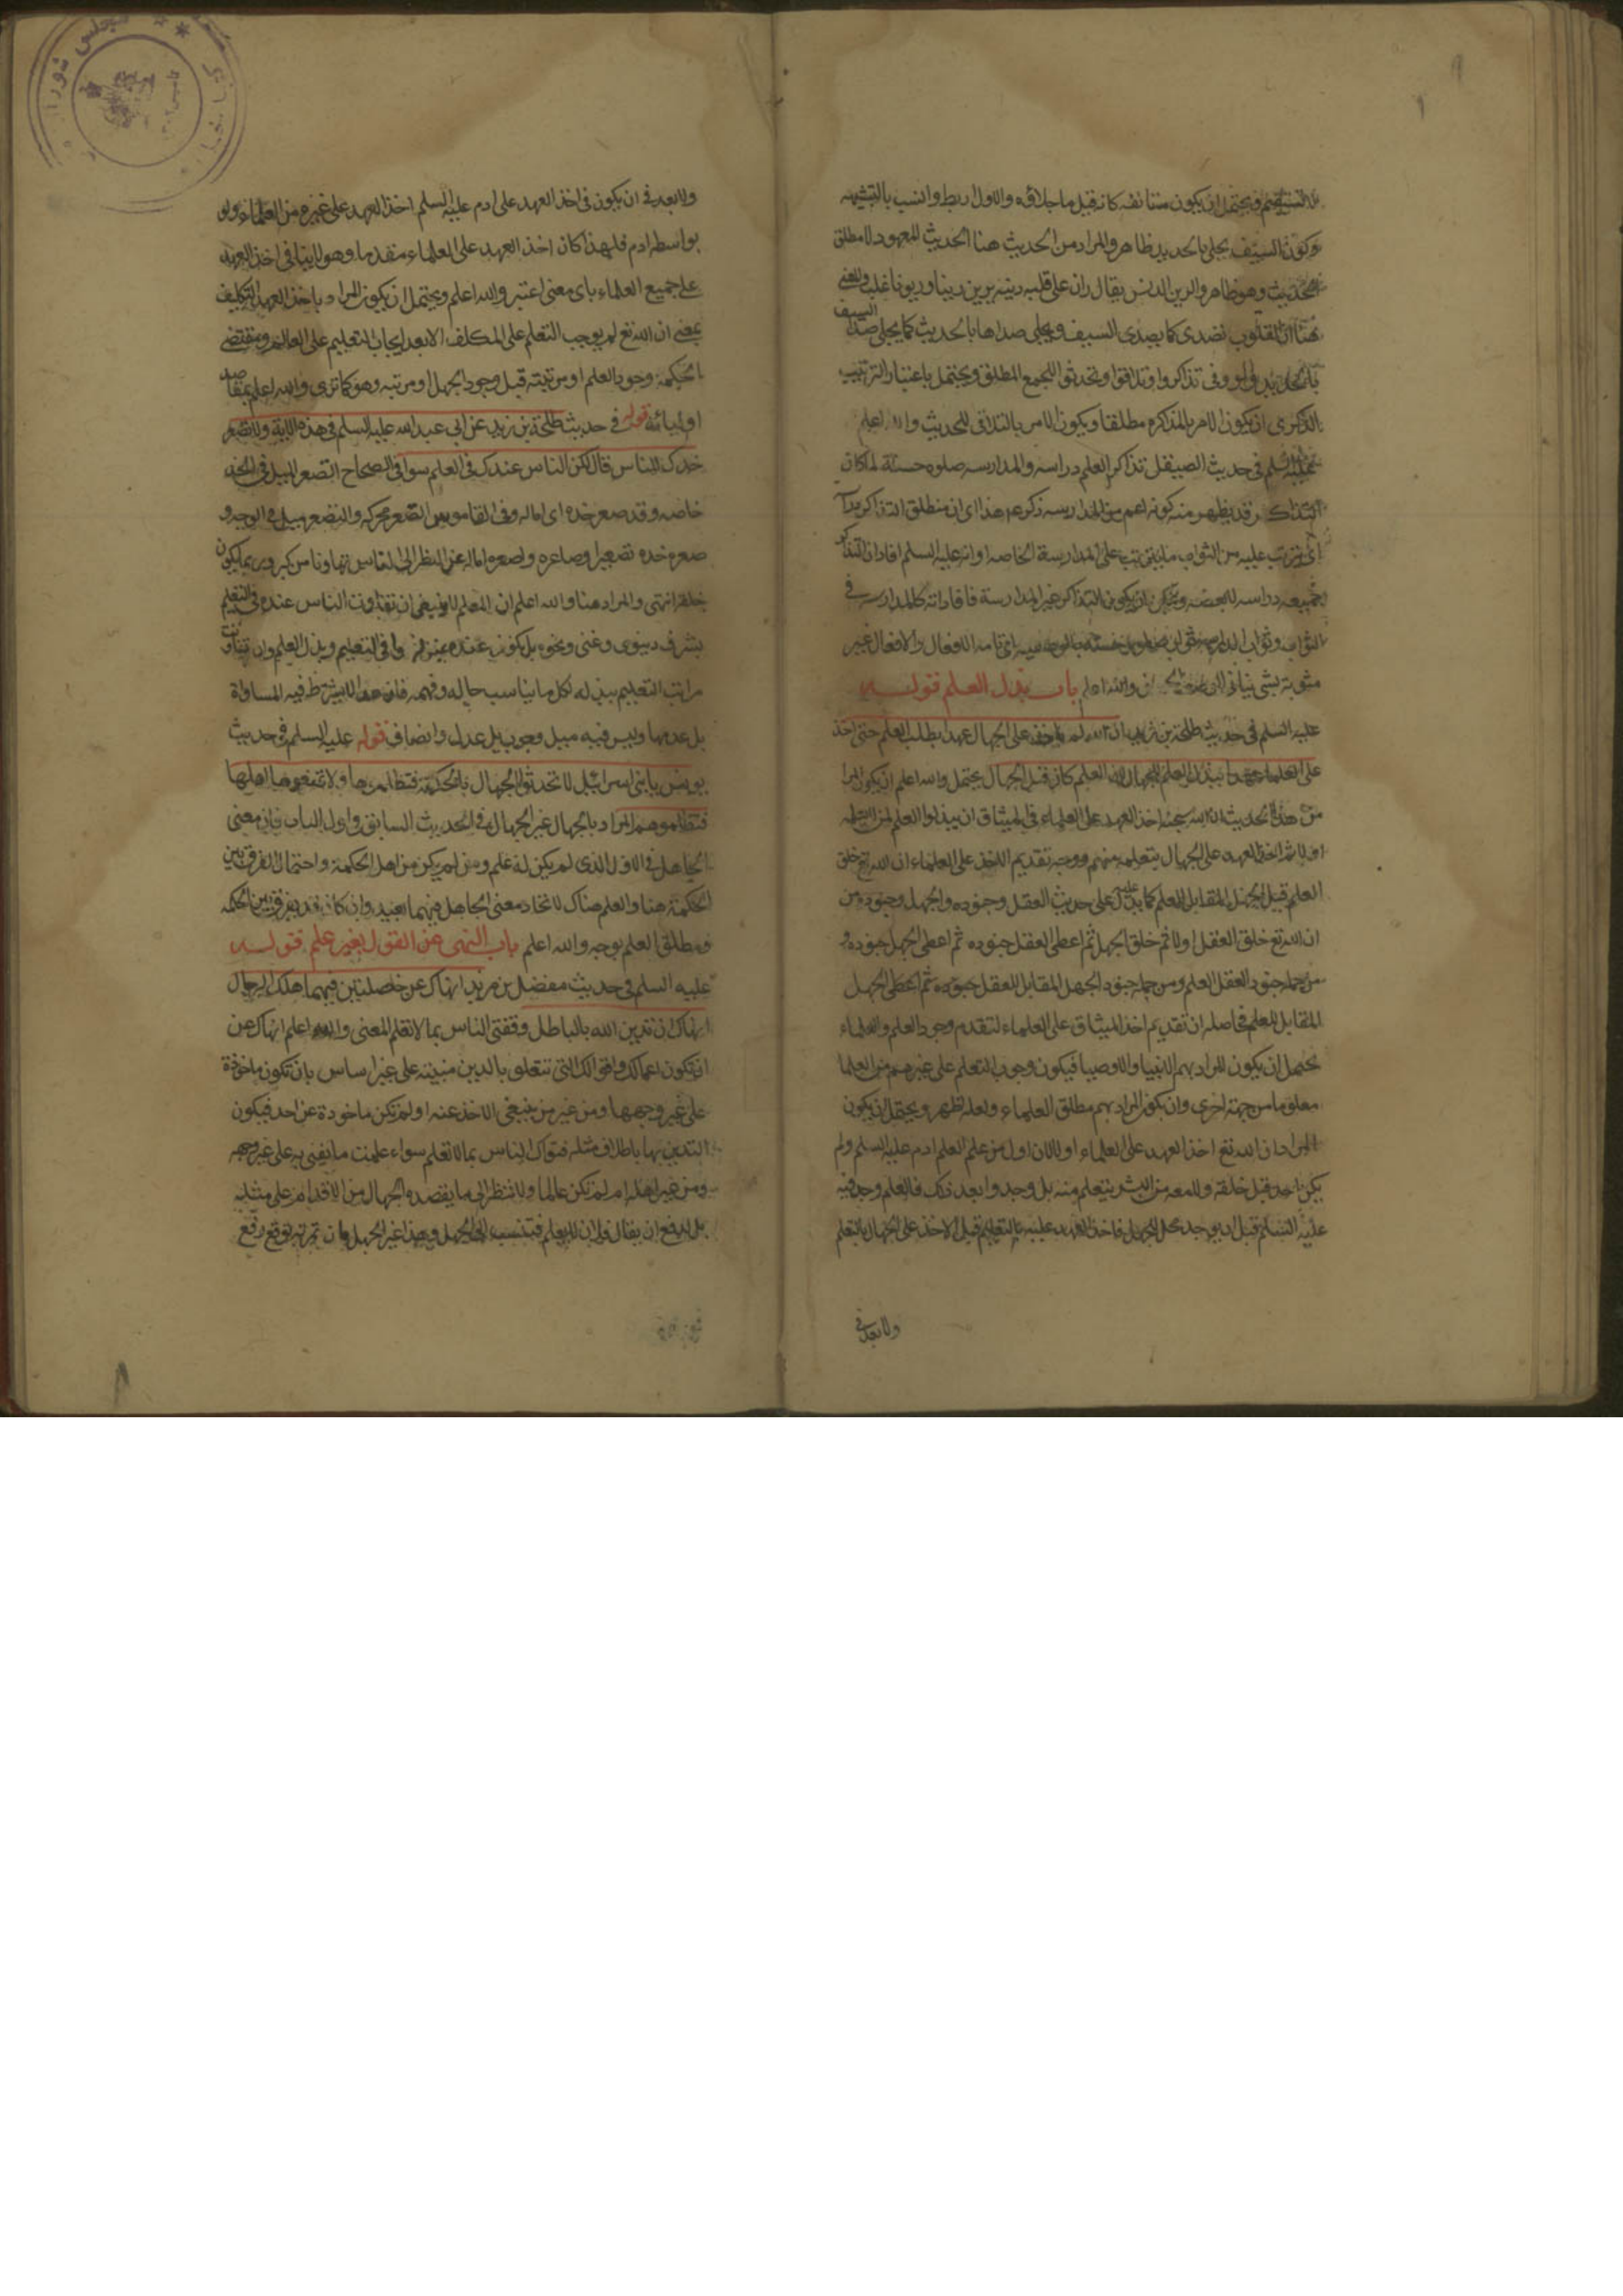 ويحتمل ان يكون مستانفه كانه قيل ما جلاؤه والاول اربط وانسب بالتشبيه
وكون السيف يجلى بالحديد ظاهر والمراد من الحديث هنا الحديث المعهود لا مطلق
الحديث وهو ظاهر والرين الدنس يقال ران على قلبه ذنبه يرين رينا وريونا غلب والمعنى
هنا ان القلوب تصدى كما يصدى السيف ويجلى صداها بالحديث كما يجلى صدا السيف
بالحديد والواو فى تذاكروا وتلاقوا وتحدثوا للجمع المطلق ويحتمل باعتبار الترتيب
الذكرى ان يكون الامر بالمذاكره مطلقا ويكون الامر بالتلاقى للحديث والله اعلم
عليه السلم فى حديث الصيقل تذاكر العلم دراسه والمدارسه صلوه حسنة لما كان
التذاكر قد يظهر منه كونه اعم من المدارسه ذكر ع هذا اى ان مطلق التذاكر
اى يترتب عليه من الثواب ما يترتب على المدارسة الخاصه او انه عليه السلم افاد ان التذاكر
جميعه دراسه للبعضه ويمكن ان يكون التذاكر غير المدارسة فافاد انه كالمدارسه فى
الثواب وثواب الدراسه ثواب صلوه حسنه
باب بذل العلم قوله
عليه السلم فى حديث طلحة بن زيد ان الله لم ياخذ على الجهال عهدا بطلب العلم حتى اخذ
على العلماء عهدا ببذل العلم للجهال لان العلم كان قبل الجهال يحتمل والله اعلم ان يكون المراد
من هذا الحديث ان الله سبحنه اخذ العهد على العلماء فى الميثاق ان يبذلوا العلم لمن
اولا ثم اخذ العهد على الجهال بتعلمه منهم ووجه تقديم الاخذ على العلماء ان الله تع خلق
العلم قبل الجهل المقابل للعلم كما يدل عليه حديث العقل وجنوده والجهل وجنوده من
ان الله تع خلق العقل اولا ثم خلق الجهل ثم اعطى العقل جنوده ثم اعطى الجهل جنوده و
من جملة جنود العقل العلم ومن جملة جنود الجهل المقابل للعقل جنوده ثم اعطى الجهل
المقابل للعلم فحاصله ان تقديم اخذ الميثاق على العلماء لتقدم وجود العلم والعلماء
يحتمل ان يكون المراد بهم الانبيا والاوصيا فيكون وجوب التعلم على غيرهم من العلما
معلوما من جهة اخرى وان يكون المراد بهم مطلق العلماء ولعله اظهر ويحتمل ان يكون
المراد ان الله تع اخذ العهد على العلماء اولا لان اول من علم العلم ادم عليه السلم ولم
يكن احد قبل خلقه ولا معه من البشر يتعلم منه بل وجدوا بعد ذلك فالعلم وجد فيه
عليه السلم قبل ان يوجد محل الجهل فاخذ العهد عليه بالتعليم قبل الاخذ على الجهال بالتعلم
ولا بعد فى
ولا بعد فى ان يكون فى اخذ العهد على ادم عليه السلم اخذ العهد على غيره من العلماء ولو
بواسطه ادم فلهذا كان اخذ العهد على العلماء متقدما وهو لا ينافى اخذ العهد
على جميع العلماء باى معنى اعتبر والله اعلم ويحتمل ان يكون المراد باخذ العهد التكليف
بمعنى ان الله تع لم يوجب التعلم على المكلف الا بعد ايجاب التعليم على العالم ومقتضى
الحكمة وجود العلم او مرتبته قبل وجود الجهل او مرتبه وهو كما ترى والله اعلم بمقاصد
اوليائه قوله فى حديث طلحة بن زيد عن ابى عبد الله عليه السلم فى هذه الاية ولا تصعر
خدك للناس قال لكن الناس عندك فى العلم سوا فى الصحاح التصعر الميل فى الخد
خاصه وقد صعر خده اى اماله وفى القاموس الصعر محركه والتصعر ميل فى الوجه و
صعر خده تصعيرا وصاعره واصعره اماله عن النظر الى الناس تهاونا من كبر وربما يكون
خلقة انتهى والمراد هنا والله اعلم ان المعلم لا ينبغى ان تتفاوت الناس عنده فى التعليم
بشرف دنيوى وغنى ونحوه بل يكونون عنده بمنزلة واحدة فى التعليم وبذل العلم وان تفاوت
مراتب التعليم ببذله لكل ما يناسب حاله وفهمه فان هذا لا يشترط فيه المساواة
بل عدمها وليس فيه ميل وجور بل عدل وانصاف قوله عليه السلم فى حديث
يونس يا بنى اسرائيل لا تحدثوا الجهال بالحكمة فتظلموها ولا تمنعوها اهلها
فتظلموهم المراد بالجهال غير الجهال فى الحديث السابق واول الباب فان معنى
الجاهل فى الاول الذى لم يكن له علم ومن لم يكن من اهل الحكمة واحتمال الفرق بين
الحكمة هنا والعلم هناك لاتحاد معنى الجاهل فيهما بعيد وان كان قد يفرق بين الحكمه
ومطلق العلم بوجه والله اعلم باب النهى عن القول بغير علم قوله
عليه السلم فى حديث مفضل بن مزيد انهاك عن خصلتين فيهما هلك الرجال
انهاك ان تدين الله بالباطل وتفتى الناس بما لا تعلم المعنى والله اعلم انهاك عن
ان تكون اعمالك واقوالك التى تتعلق بالدين مبنيته على غير اساس بان تكون ماخوذة
على غير وجهها ومن غير من ينبغى الاخذ عنه او لم تكن ماخوذة عن احد فيكون
التدين بها باطلا مثله فتواك الناس بما لا تعلم سواء علمت ما يفتى به على غير وجهه
ومن غير اهله ام لم تكن عالما ولا تنظر الى ما يقصده الجهال من الاقدام على مثله